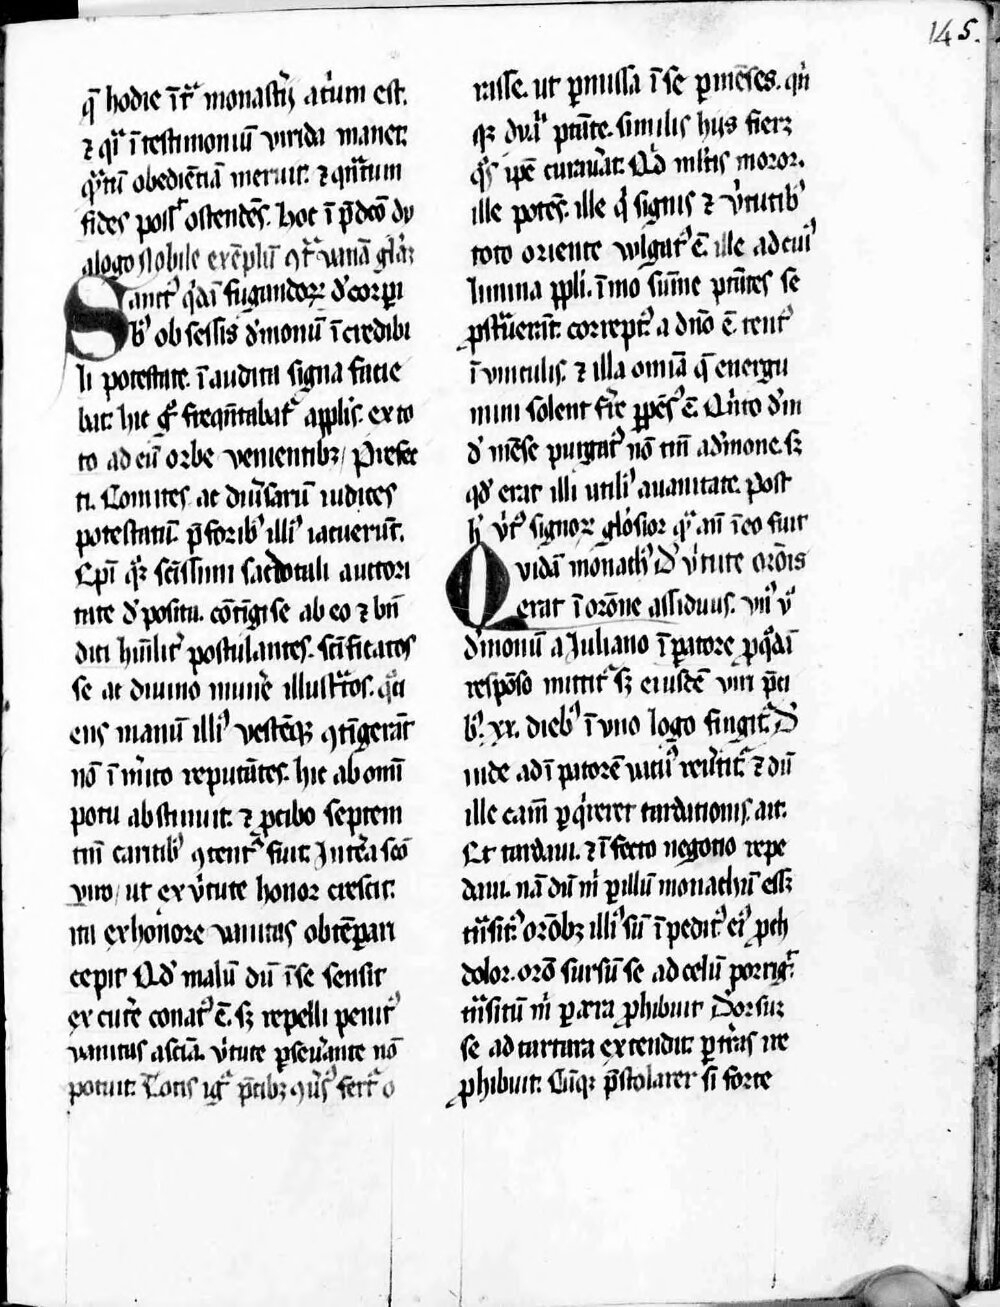 145.
q̄ hodie ī tͣ monast'ij atͥum est.
⁊ qͥ ī testimoniū virida manet.
qͣntū obediētiā meruit. ⁊ qͣntum
fides possͭ ostendēs. hoc ī p̄dcō dy
alogo Nobile exēplū ꝯtͣ vanā gl̄aꝫ
Sanctꝰ qͥdā fugandoꝝ d' corpi
bꝰ obsessis d'monū īcredibi
li potestate. īaudita signa facie
bat. hic gͦ freqn̄tabatͬ appl'is. ex to
to ad eū orbe venientibꝫ / Prefec
ti. Comites ac diu'saru iudices
potestatū. p̄ foribꝰ illiꝰ iacuerūt.
Epī qͦꝫ scīssimi sacerdotali auctori
tate d' posita. cōtīgi se ab eo ⁊ bn̄
dici hūilitͬ postulantes. scīficatos
se ac diuino mun'e illustͣtos. qͦci
ens manū illiꝰ vestēqꝫ ꝯtīgerāt
nō īm'ito reputātes. hic ab omī
potu abstinuit. ⁊ ꝓ cibo septem
tm̄ caricibꝰ ꝯtentꝰ fuit. Int'ea scō
viro / ut ex v'tute honor crescit.
ita ex honore vanitas obtēpari
cepit Qd' malū dū ī se sensit
excut'e conatꝰ ē. sꝫ repelli penitꝰ
vanitas ascīa. v'tute ꝑseu'ante nō
potuit. Totis igͬ p̄cibꝫ ꝯu'sꝰ fertͬ o
rasse. ut ꝑmissa ī se ꝑ mēses. qn̄
qꝫ dyaͥ ptāte. similis hijs fierꝫ
qͦs ipē curau'at. Qd ml'tis moror.
ille potēs. ille qͥ signis ⁊ v'tutibꝰ
toto oriente vlgatꝰ ē ille ad cuiꝰ
limina ppli. īmo sūme ptātes se
ꝓstͣuerāt. correptꝰ a dn̄o ē tentꝰ
ī vinculis. ⁊ illa omīa q̄ energu
mini solent fr̄e ꝑpessꝰ ē. Qn̄to d'm
d' mēse purgatꝰ nō tm̄ a d'mone. sꝫ
qd' erat illi utiliꝰ a vanitate. Post
h' v'tꝰ signoꝝ gl'osior qͣ an̄ ī eo fuit
Quidā monachꝰ D' v'tute orōis
erat ī orōne assiduus. vn̄ vͦ
d'monū a Juliano īpatore ꝓ qͦdā
respōso mittitͬ sꝫ eiusdē viri p̄ci
bꝰ. xx. diebꝰ ī vno logo fingitͬ. D'
inde ad īpatorē vacuꝰ reu'titͬ. ⁊ dū
ille cām ꝑquireret tarditionis. ait.
Et tardaui. ⁊ īfecto negotio repe
daui. nā dū m̄ ꝑ illū monachū essꝫ
tn̄sitꝰ. orōibꝫ illiꝰ sū īpeditꝰ eiꝰ ꝓch
dolor. orō sursū se ad celū porrigͬ.
tn̄situ m̄ ꝑ aera ꝓhibuit Dorsuꝫ
se ad tartara extendit. ꝑ tr̄as ire
ꝓhibuit. Cūqꝫ p̄stolarer si forte